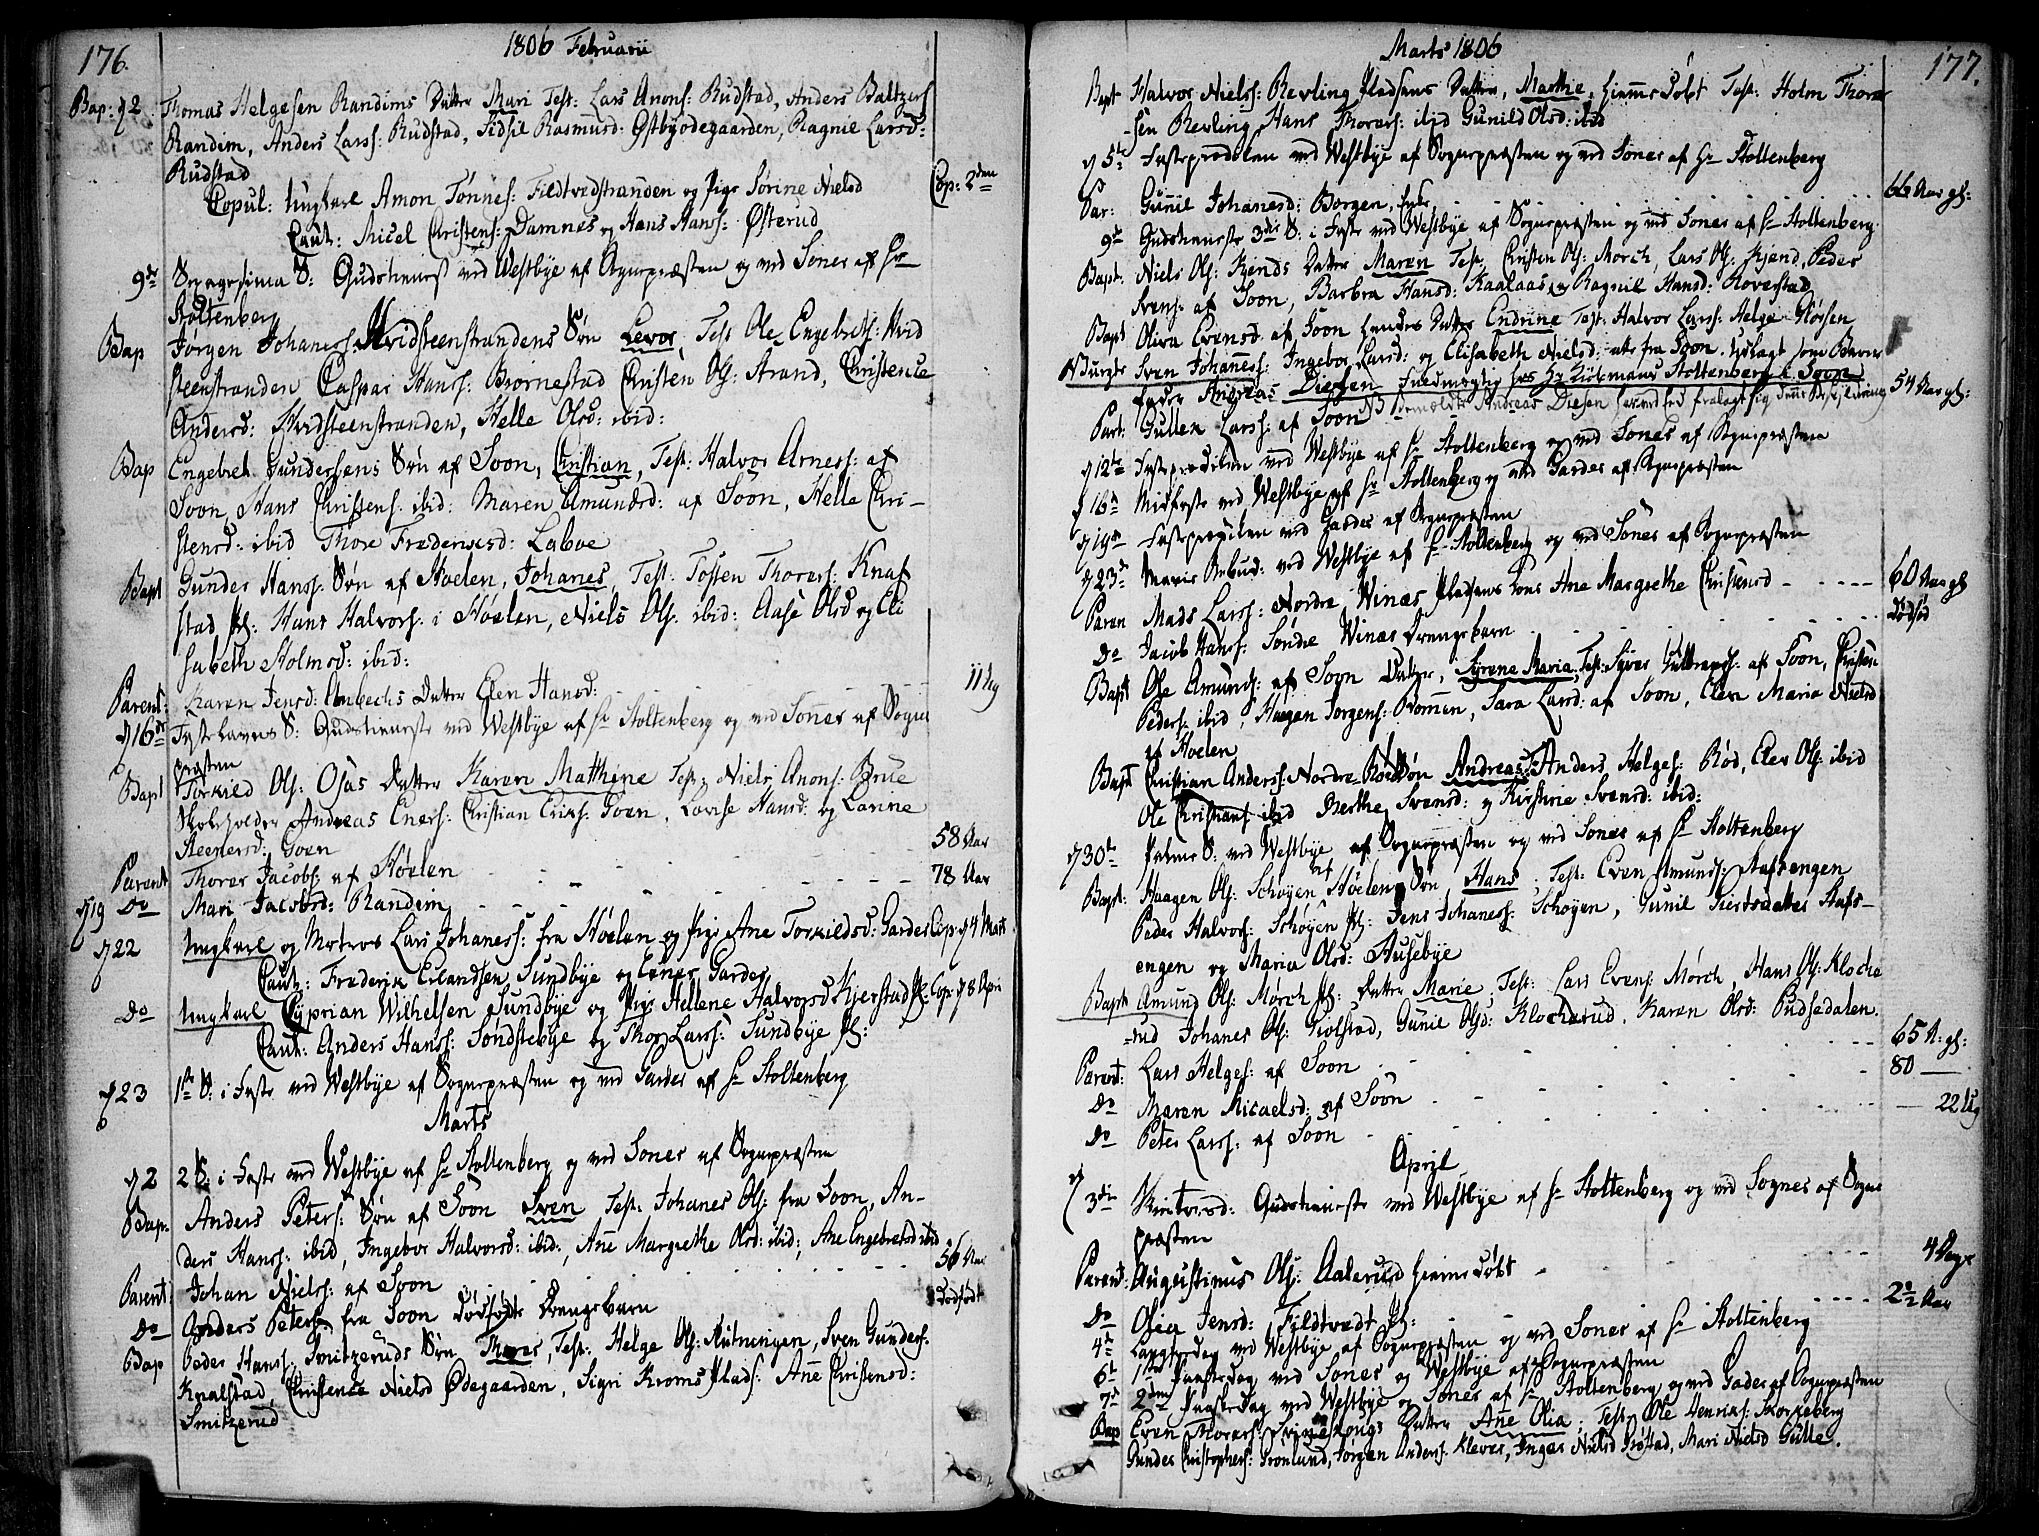 176.
1806 Februarii
Bap: d 2. Thomas Helgesen Randims Datter Mari Test: Lars Anons: Rudstad, Anders Baltzers
Randim, Anders Larss: Rudstad, Sidsil Rasmusd: Østbyødegaarden, Ragnil Larsd:
Rudstad
Copul: Ungkarl Amon Tønnes: Fildtvedstranden og Pige Sørine Nielsd Cop: 2den
Caut: Micel Christens: Damnes og Hans Hanss: Østerud
9de Sexagesima S: Gudstieneste ved Westbye af Sognepræsten og ved Soner af Hr
Stoltenberg
Bap Jørgen Johaness: Hvidsteenstrandens Søn Levor, Test Ole Engebrets: Hvid
steenstranden Caspar Hanss: Brørnestad Christen Ols: Strand, Christence
Andersd: Hvidsteenstranden, Helle Olsd: ibid:
Bap Engebret Gundersens Søn af Soon, Christian, Test: Halvor Arness: af
Soon, Hans Christens: ibid: Maren Amundsd: af Soon, Helle Chri-
stensd: ibid Thore Frederiksd: Laboe
Bapt Gunder Hanss: Søn af Hoelen, Johanes, Test: Tosten Thorers: Knaf
stad pl: Hans Halvors: i Hoelen, Niels Ols: ibid: Aase Olsd og Eli
sabeth Holmsd: ibid:
Parent: Karen Jensd: Ambechs Datter Elen Hansd: 11 Ug
d 16de Fastelavns S: Gudstieneste ved Westbye af Hr Stoltenberg og ved Soner af Sogne
præsten
Bapt Torkild Ols: Osas Datter Karen Matthine Test: Niels Anons: Brue
Skoleholder Andreas Eners: Christian Eriks: Goen, Lovise Hansd: og Larine
Steenersd: Goen
Parent Thorer Jacobs: af Høelen 58 Aar
d 19 Do Mari Jacobsd: Randim 78 Aar
d 22 Ungkarl og Matros Lars Johaness: fra Høelen og Pige Ane Torkildsd: Garder Cop: d 4 Marts
Caut: Frederik Erlandsen Sundbye og Ener Garder
Do Ungkarl Cyprian Wilhelsen Sundbye og Pige Helene Halvorsd Kjerstad pl: Cop: d 8 April
Caut: Anders Hanss: Søndstebye og Thor Larss: Sundbye pl:
d 23 1ste S: i Faste ved Westbye af Sognepræsten og ved Garder af Hr Stoltenberg
Marts
d 2 2 S: i Faste ved Westbye af Hr Stoltenberg og ved Soner af Sognepræsten
Bap. Anders Peters: Søn af Soon Sven Test: Johanes Ols: fra Soon, An-
ders Hanss: ibid, Ingebor Halvorsd: ibid:, Ane Margrethe Olsd: ibid:, Ane Engebretsd ibid
Parent: Johan Niels: af Soon 56 Aar
Do Anders Peters: fra Soon dødfødt Drengebarn Dødfødt
Bap Peder Hanss: Smitzeruds Søn Thores, Test: Helge Ols: Rutningen, Sven Gunders:
Knalstad, Christence Nielsd Ødegaarden, Sigri Kroms Plads: Ane Christensd:
Smitzerud
177.
Marts 1806
Bapt Halvor Nielss: Revling Pladsens Datter, Marthe, hiemmedøbt Test: Holm Thorer
sen Revling Hans Thorers: ibid Gunild Olsd: ibid
d 5te Fasteprædiken ved Westbye af Sognepræsten og ved Soner af Hr Stoltenberg
Par: Gunil Johanesd: Borgen, Enke 66 Aar gl:
9de Gudstieneste 3die S: i Faste ved Westbye af Sognepræsten og ved Soner af Hr Stoltenberg.
Bapt: Niels Ols: Kjends Datter Maren Test: Christen Ols: Morch, Lars Ols: Kjend, Peder
Svens: af Soon, Barbra Hansd: Kaalaas og Ragnil Hansd: Roverstad
Bapt Oliva Evensd: af Soon hendes Datter Endrine Test: Halvor Larss: Helge Gløsen
Sven Johaness: Ingebor Larsd: og Elisabeth Nielsd: alle fra Soon. Udlagt som Barne
fader Andreas Diesen Fuldmægtig hos Hr Kiøbmand Stoltenberg i Soon
Part: Gullek Larss: af Soon 54 Aar gl:
NB bemeldte Andreas Diesen fralagt sig denne Beskyldning
d 12te Fasteprædiken ved Westbye af Hr Stoltenberg og ved Soner af Sognepræsten
d 16de Midfaste ved Westbye af Hr Stoltenberg og ved Garder af Sognepræsten
d 19de Fasteprædiken ved Garder af Sognepræsten
d 23de Mariæ Bebud: ved Westbye af Hr Stoltenberg og ved Soner af Sognepræsten
Paren Mads Larss: Nordre Winæs Pladsens Kone Ane Margrethe Christensd 60 Aar gl
Do Jacob Hanss: Søndre Winæs Drengebarn Dødfød
Bapt Ole Amunds: af Soon Datter, Syrene Maria, Test: Syver Guttorms: af Soon, Christen
Peders: ibid, Haagen Jorgens: Bommen, Sara Larsd: af Soon, Elen Maria Nielsd
af Hoelen
Bapt Christian Anderss: Nordre Rød Søn Andreas, T: Anders Helges: Rød, Elev Ols: ibid
Ole Christians: ibid Berthe Svensd: og Kirstine Svensd: ibid:
d 30te Palme S: ved Westbye af Sognepræsten og ved Soner af Hr Stoltenberg
Bapt: Haagen Ols: Schøyen af Høelen Søn, Hans. Test: Even Amunds: Stafsengen
Peder Halvors: Schøyen pl: Jens Johaness: Schøyen, Gunil Siversdatter Stafs-
engen og Maria Olsd: Husebye
Bapt Amund Ols: Mørch pl: Datter Marie, Test: Lars Evens: Mørch, Hans Ols: Kloche
rud Johanes Ols: Giølstad, Gunil Olsd: Klocherud, Karen Olsd: Pudsedalen.
Parent: Lars Helges: af Soon 65 A: gl:
Do Maren Micaelsd: af Soon 80
Do Peter Larss: af Soon 22 Ug
April
d 3die Skiertorsd: Gudstieneste ved Westbye af Hr Stoltenberg og ved Sogner af Sogne
præsten
Parent: Augustinus Ols: Aalerud hiemmedøbt 4 Dage
Do Olea Jensd: Fildtvedt pl: 2½ Aar
4de Langfredag ved Westbye af Sognepræsten og ved Soner af Hr Stoltenberg
6te 1ste Paaskedag ved Soner og Westbye af Sognepræsten
7de 2den Paaskedag ved Westbye og Soner af Hr Stoltenberg og ved Garder af Sognepræsten
Bap Even Thorers: Svinekongs Datter Ane Olia, Test: Ole Henriks: Skorkeberg
Gunder Christophers: Grønlund, Jørgen Anders: Klever, Inger Nielsd Trøstad, Mari Nielsd Gülle.